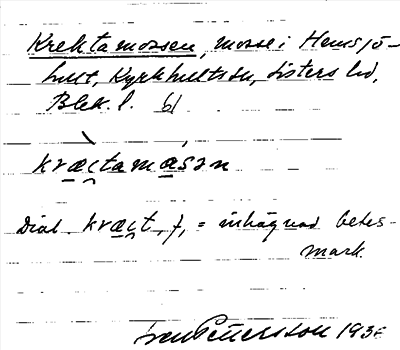 Krektamossen, mosse i Hemsjö-
hult, Kyrkhults sn, Listers hd,
Blek. l. 61
kræctamåsən
Dial. kræct, f, = inhägnad betes-
mark.
Sven Pettersson 1936